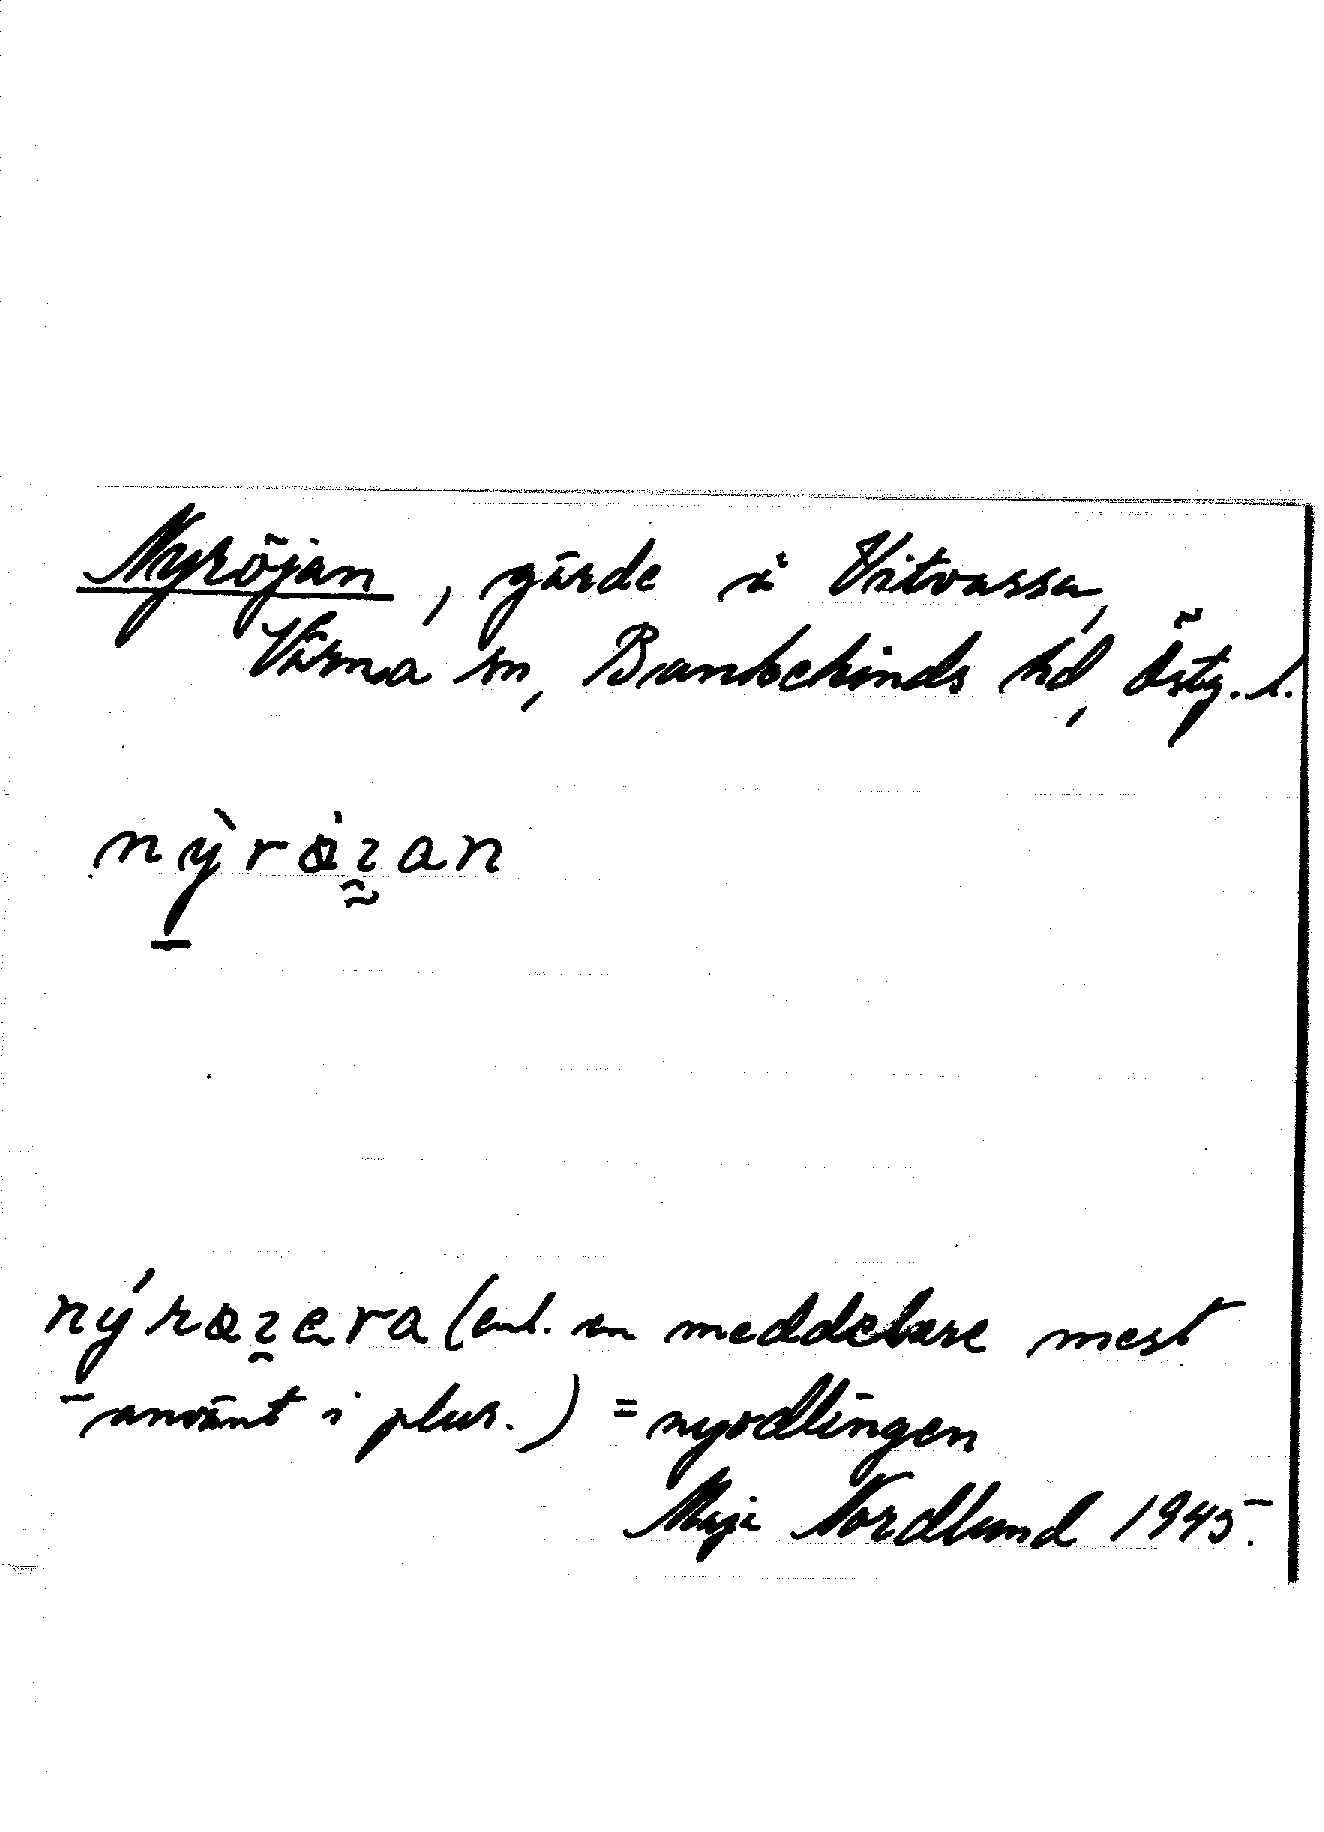 Nyröjan, gärde i Vitvassa,
Värna sn, Bankekinds hd, Östg. l.
nỳrøʒan
nýrøʒera (enl. en meddelare mest
använt i plur.) = nyodlingen
Maja Nordlund 1945.